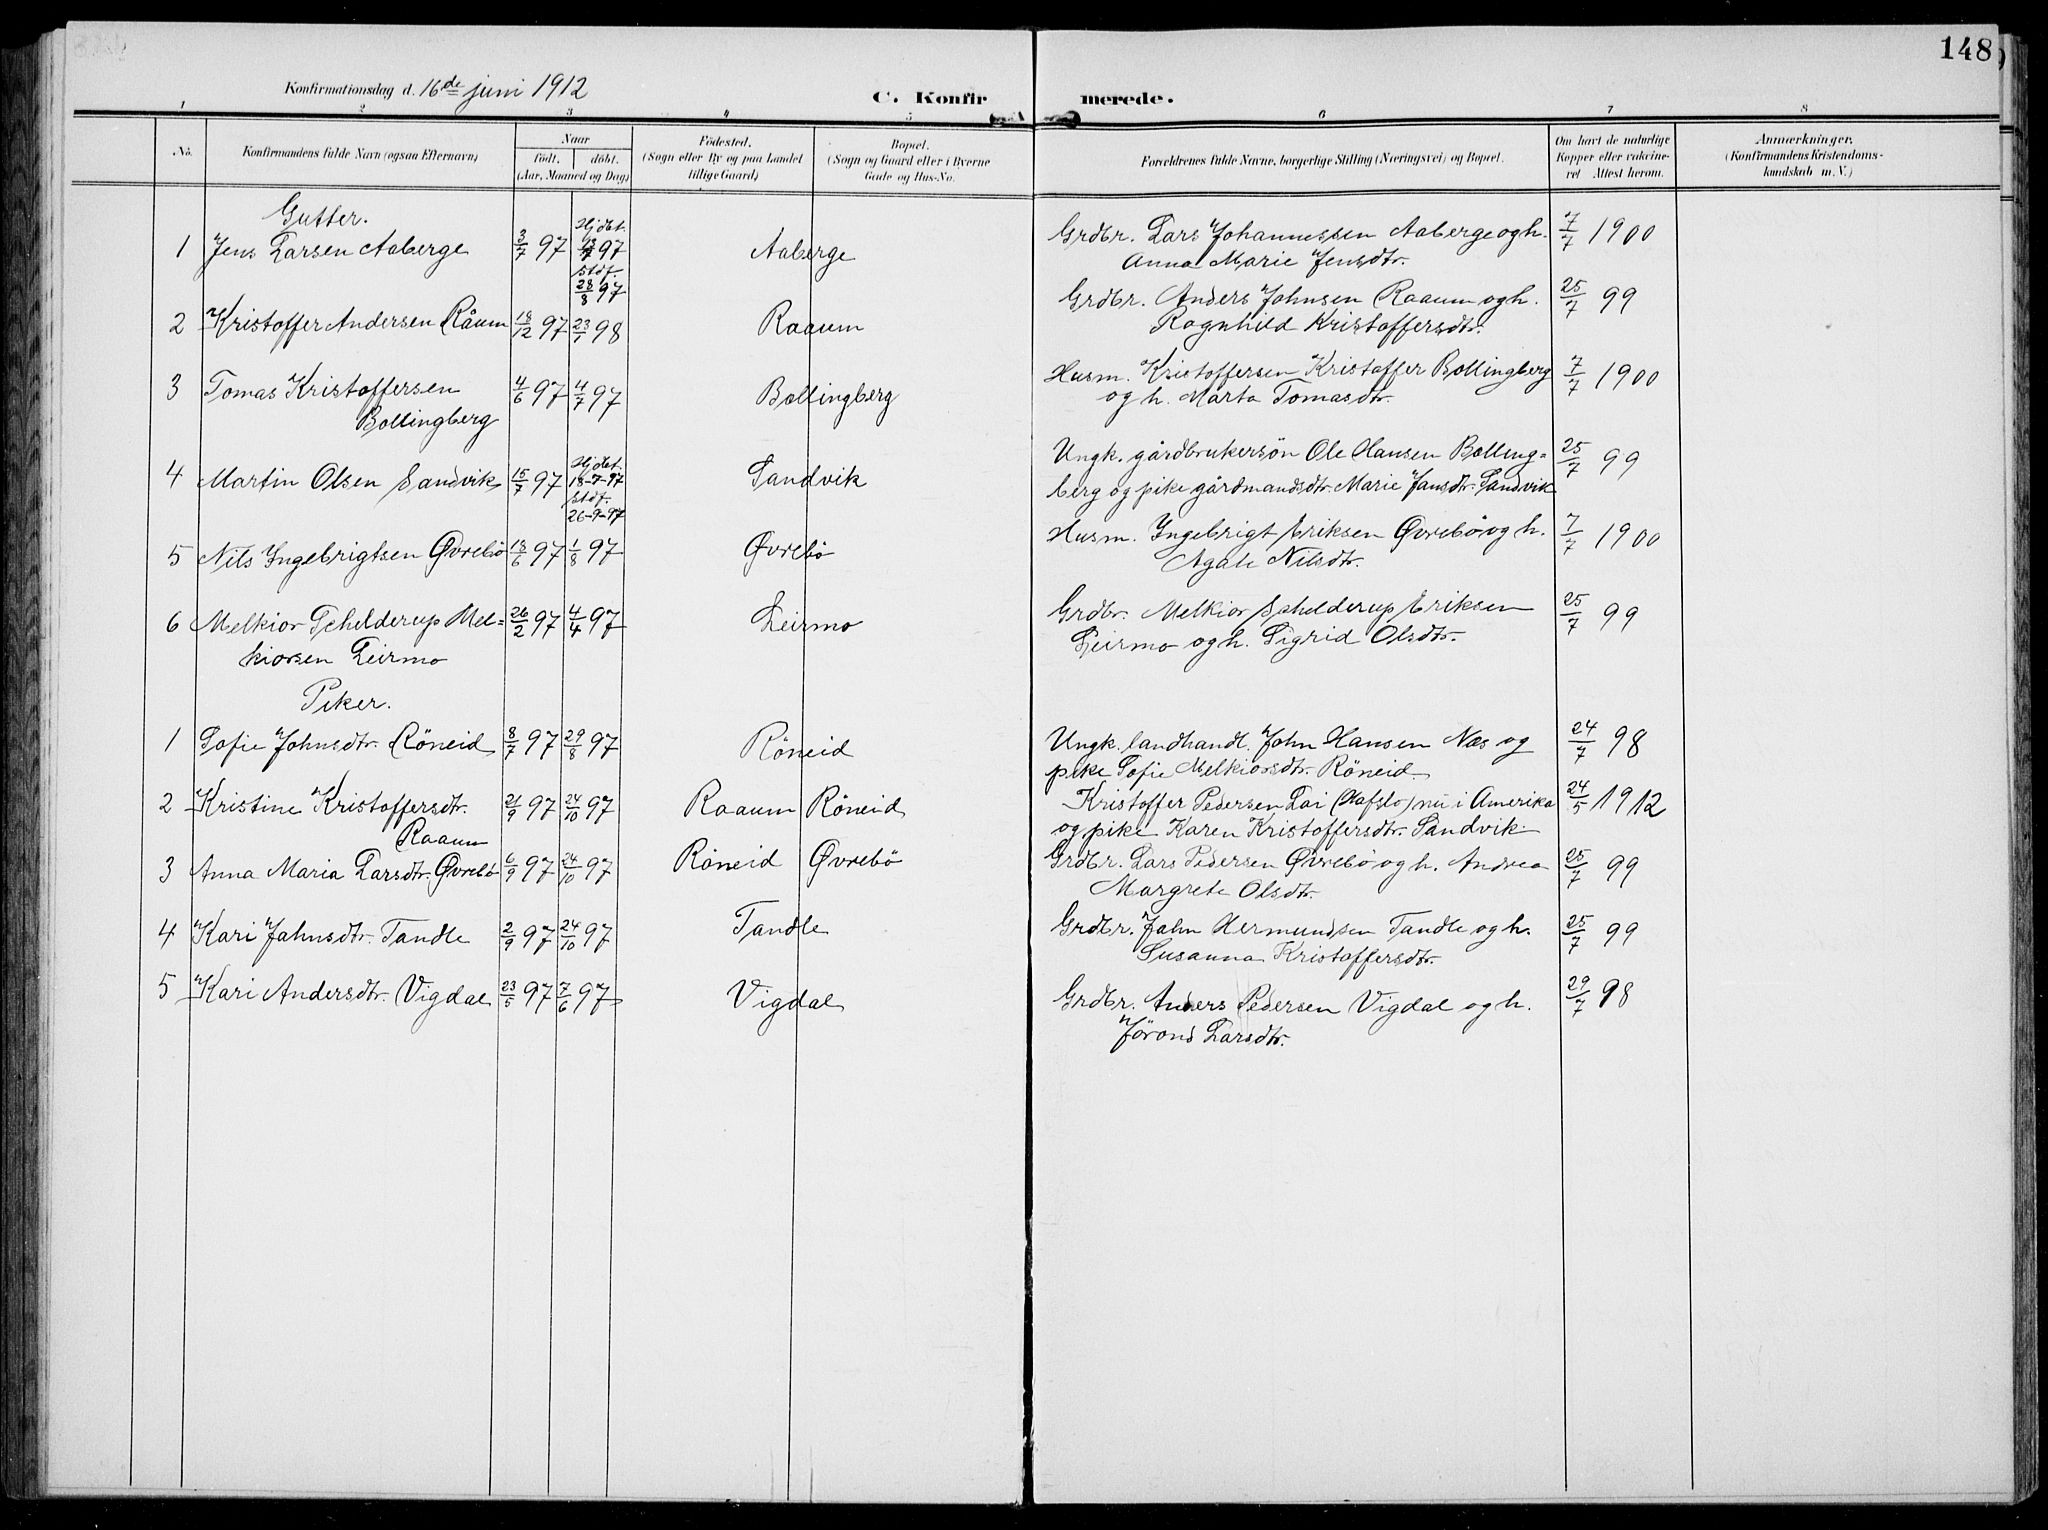 148
Konfirmationsdag d. 16de juni 1912
C. Konfirmerede.
1 2 3 4 5 6 7 8
No. Konfirmandens fulde Navn (ogsaa Efternavn) Naar født. døbt. (Aar, Maaned og Dag) Fødested. (Sogn eller By og paa Landet tillige Gaard) Bopæl. (Sogn og Gaard eller i Byerne Gade og Hus-No. Forældrenes fulde Navne, borgerlige Stilling (Næringsvei) og Bopæl. Om havt de naturlige Kopper eller vakcineret Attest herom. Anmærkninger. (Konfirmandens Kristendomskundskab m. V.)
Gutter.
1 Jens Larsen Aaberge 3/7 97 Hjdøbt. 97 stdf. 28/8 97 Aaberge Grdbr. Lars Johannessen Aaberge og h. 7/7 1900
Anna Marie Jensdtr.
2 Kristoffer Andersen Råum 18/12 97 23/1 98 Raaum Grdbr. Anders Johnsen Raaum og h. 25/7 99
Ragnhild Kristoffersdtr.
3 Tomas Kristoffersen 4/6 97 4/7 97 Bollingberg Husm. Kristoffersen Kristoffer Bollingberg 7/7 1900
Bollingberg og h. Marta Tomasdtr.
4 Martin Olsen Sandvik 15/7 97 Hjdbt. 18-7-97 stdf. 26-9-97 Sandvik Ungk. gårdbrukersøn Ole Hansen Bolling= 25/7 99
berg og pike gårdmandsdtr. Marie Jansdtr. Sandvik
5 Nils Ingebrigtsen Øvrebö 18/6 97 1/8 97 Øvrebö Husm. Ingebrigt Eriksen Øvrebö og h. 7/7 1900
Agate Nilsdtr.
6 Melkior Schelderup Mel= 26/2 97 4/4 97 Leirmo Grdbr. Melkior Schelderup Eriksen 25/7 99
kiorsen Leirmo Leirmo og h. Sigrid Olsdtr.
Piker.
1 Sofie Johnsdtr. Röneid 8/7 97 29/8 97 Röneid Ungk. landhandl. John Hansen Næs og 24/7 98
pike Sofie Melkiorsdtr. Röneid
2 Kristine Kristoffersdtr. 21/9 97 24/10 97 Raaum Röneid Kristoffer Pedersen Lai (Hafslo) nu i Amerika 24/5 1912
Raaum og pike Karen Kristoffersdtr. Sandvik
3 Anna Maria Larsdtr. Øvrebö 6/9 97 24/10 97 Röneid Øvrebö Grdbr. Lars Pedersen Øvrebö og h. Andrea 25/7 99
Margrete Olsdtr.
4 Kari Jahnsdtr. Tandle 2/9 97 24/10 97 Tandle Grdbr. Jahn Hermundsen Tandle og h. 25/7 99
Susanna Kristoffersdtr.
5 Kari Andersdtr. Vigdal 23/5 97 7/6 97 Vigdal Grdbr. Anders Pedersen Vigdal og h. 29/7 98
Jørond Larsdtr.